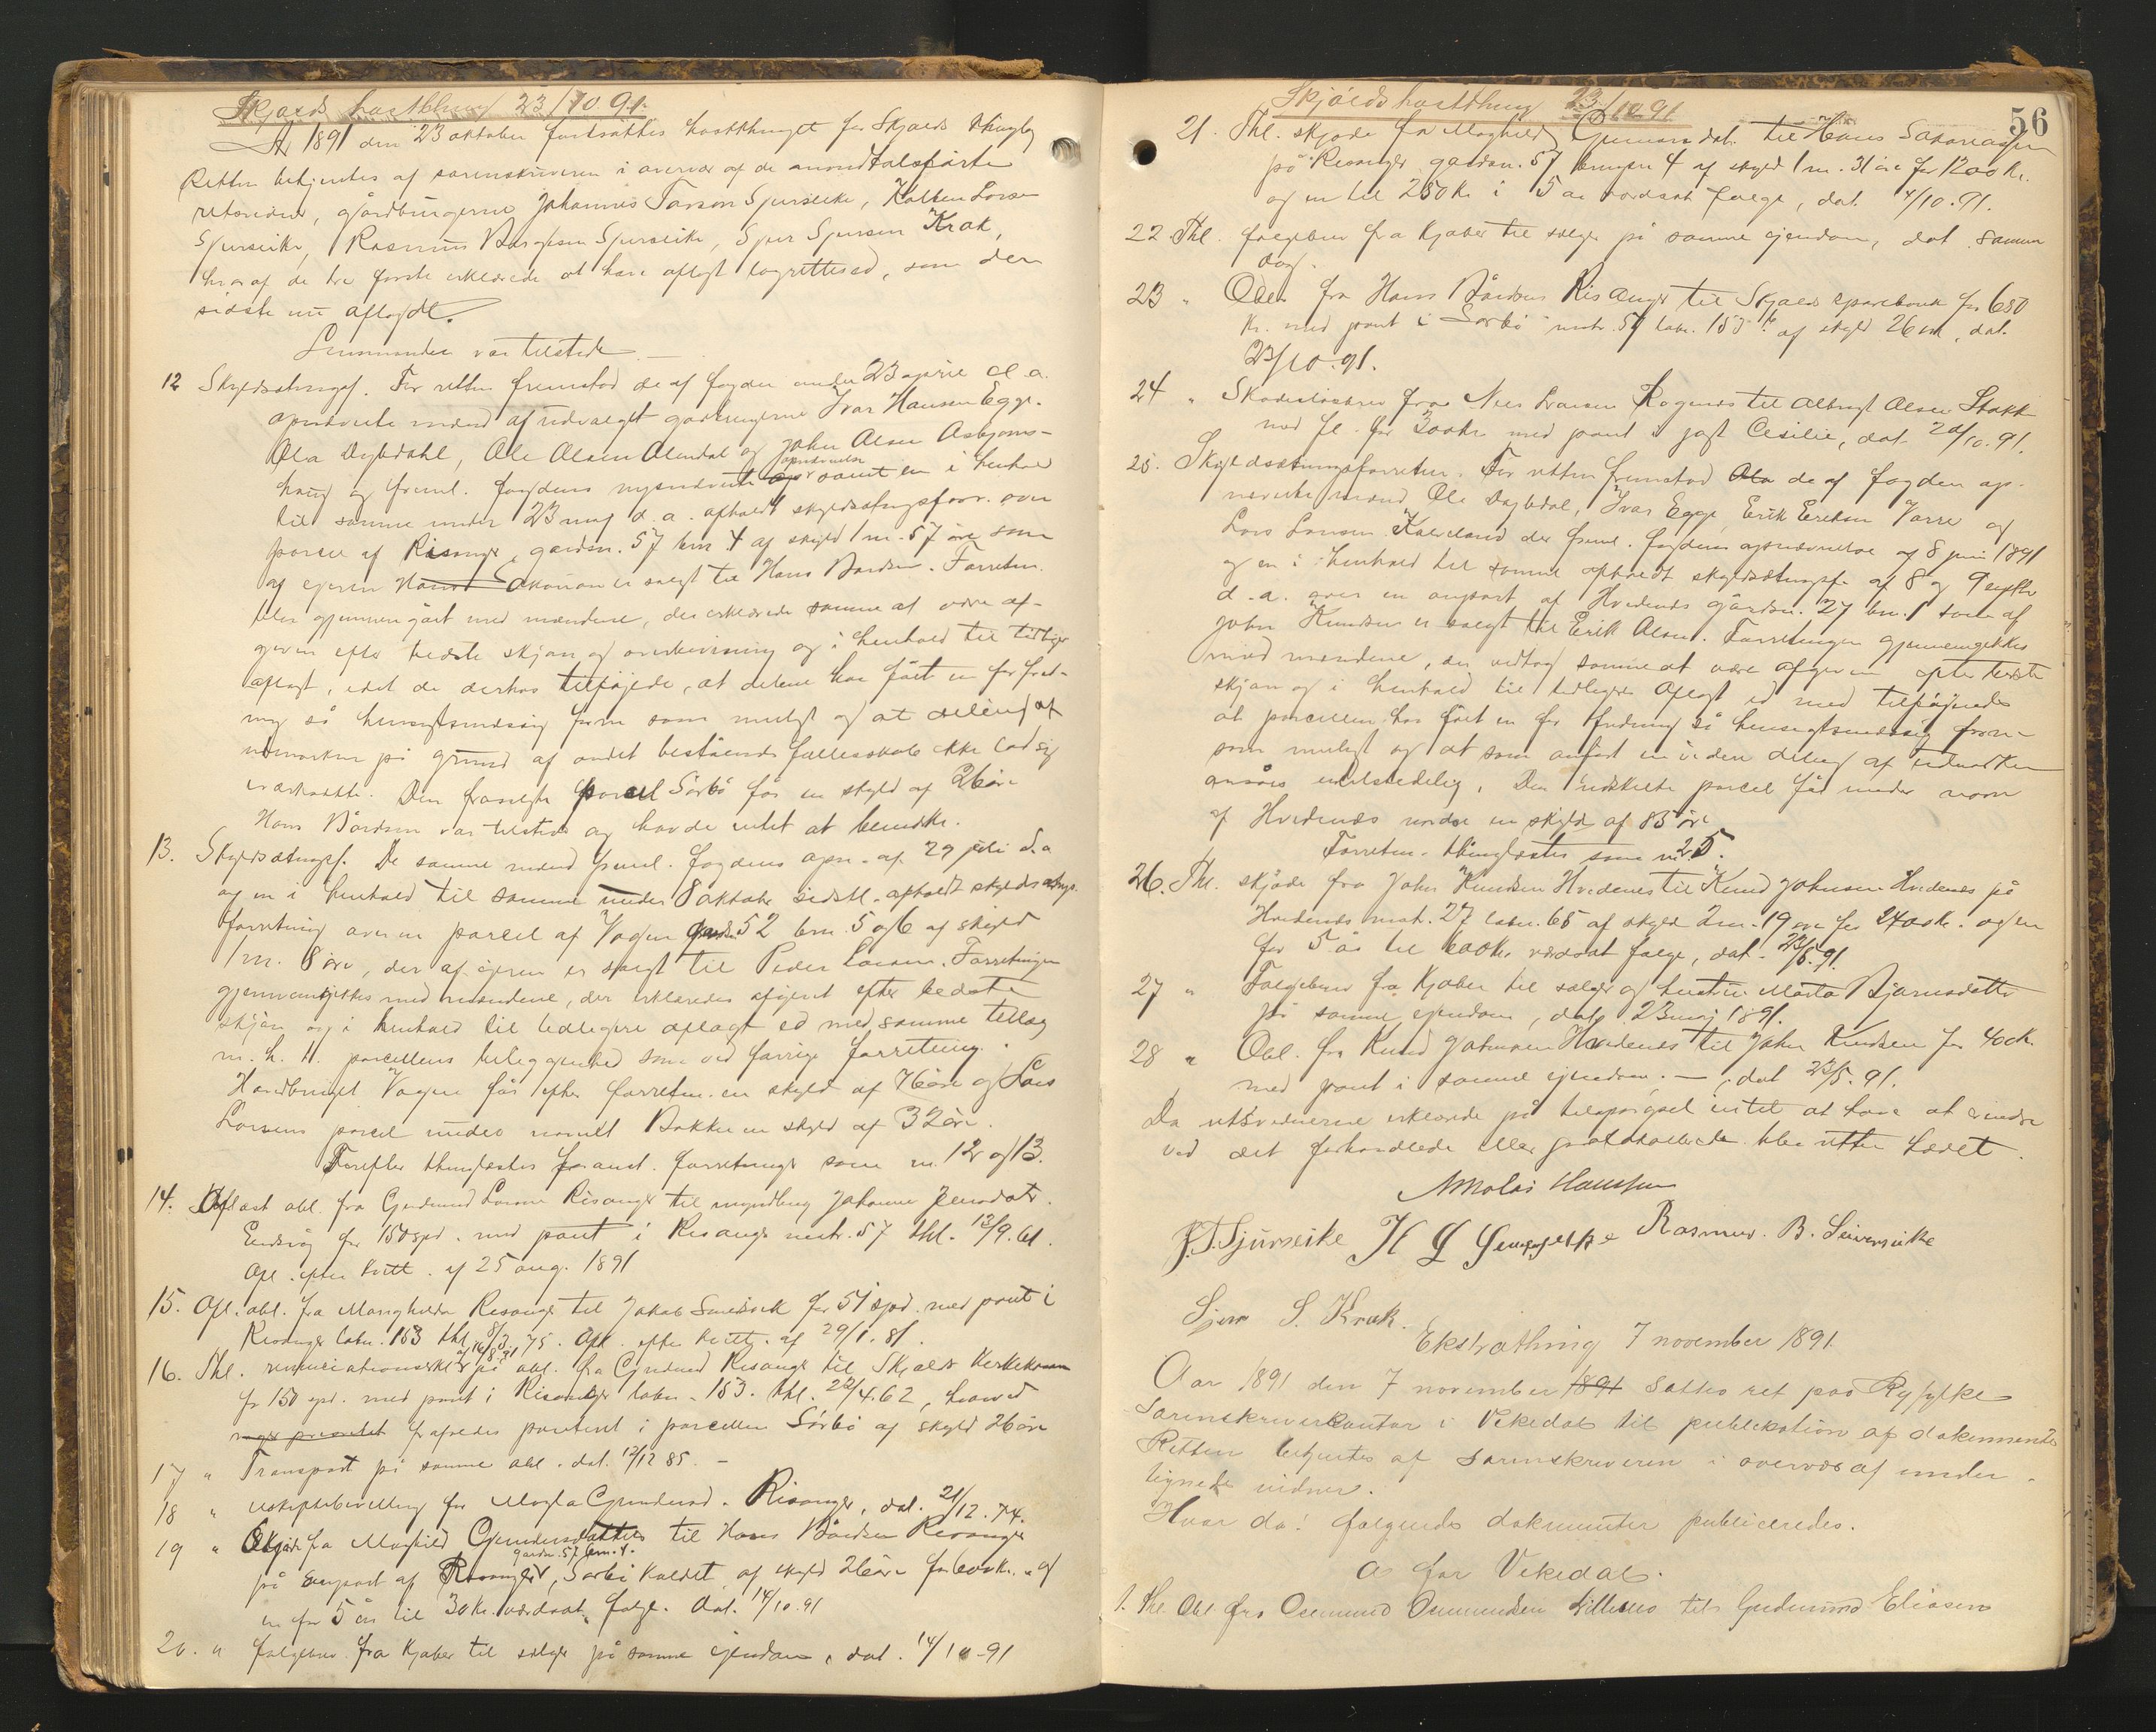 Skjolds høstthing 23/10 91.
År 1891 den 23 oktober fortsattes høstthinget for Skjolds thinglag
Retten betjentes af sorenskriveren i overvær af de ommedtalsførte
retsvidner, gårdbrugerne Johannes Tørresen Spursvike, Larsen
Spurseike, Rasmus Spurseike, Sjur Sjursen Krak,
hvoraf de tre første erklærede at have aflagt lagrettesed, som den
sidste nu aflagde.
Lensmanden var tilstede.
12 Skyldsætningsf. For retten fremstod de af fogden under 23 april d. a.
opnævnte mænd af udvalget gårdbrugerne Ivar Hansen Egge.
Ola Dybdahl, Ole Olsen Ølmedal og John Olsen Asbjørns-
haug og freml. fogdens opnævnelse samt en i henhold
til samme under 23 maj d. a. afholdt skyldsætningsforr. over
parcel af Risanger, gårdsn. 57 brn 4 af skyld 1 m. 57 øre som
af eieren er solgt til Hans Bårdsen. Forretn.
blev gjennemgået med mændene, der erklærede samme at være af-
given efter bedste skjøn og overbevisning og i henhold til tidligere
aflagt, idet de derhos tilføjede, at delene har fået en for fred-
ning så hensigtsmæssig form som muligt og at deling af
udmarken på grund af andet bestående fællesskab ikke lod sig
iværksætte. Den frasolgte parcel Sørbø får en skyld af 26 øre
Hans Bårdsen var tilstede og havde intet at bemærke.
13. Skyldsætningsf. De samme mænd freml. fogdens opn. af 29 juli d. a
og en i henhold til samme under 8 oktober sidstl. afholdt skyldsætngs.
forretning over en parcel af Vågen gårdsn. 52 brn. 5 og 6 af skyld
1 m. 8 øre, der af eieren er solgt til Peder Larsen. Forretningen
gjennemgikkes med mændene, der erklæredes afgivet efter bedste
skjøn og i henhold til tidligere aflagt ed med samme tillæg
m. h. t. parcellens beliggenhed som ved forrige forretning.
Hovedbruget Vågen får efter forretn. en skyld af 76 øre og Lars
Larsens parcel under navnet Bakken en skyld af 32 øre.
Derefter thinglæstes foranst. forretninger som nr. 12 og 13.
14. Aflæst obl. fra Gudmund Larsen Risanger til myndling Johanne Jensdatr.
Endsög for 150 spd. med pant i Risanger matr. 57 thl. 12/9. 61.
Afl. efter kvitt. af 25 aug. 1891
15. Afl. obl. fra Risanger til Jakob for 51 spd. med pant i
Risanger løbn. 153 thl. 8/3 75. Afl. efter kvitt. af 29/1. 81.
16. Thl. renunciationserkl. af 16/8 91 på obl. fra Gudmund Risanger til Skjolds kirkekasse
for 150 spd. med pant i Risanger løbn. 153. thl. 22/4.62, hvorved
nogen prioritet frafaldes panteret i parcellen Sørbø af skyld 26 øre
17 " Transport på samme obl. dat. 12/12 85. –
18 " Uskiftebevilling for Gudmund. Risanger, dat. 21/12. 74.
19 " Skjøde fra Maghild Gudmundsdatter til Hans Bårdsen Risanger
gårdsn. 57 brn. 4.
på enpart af Risanger, Sørbø kaldet af skyld 26 øre for 600 kr. og
en for 5 år til 30 kr. værdsat folge. dat. 14/10. 91
20. " folgebrev fra kjøber til sælger på samme ejendom, dat. 14/10-91
Skjolds høstthing 23/10 91
56
21. Thl. skjøde fra Maghild dat. til Hans Sakariassen
på Risanger gårdsn. 57 brugsn 4 af skyld 1 m. 31 øre for 1200 kr.
og en til 250 kr i 5 år værdsat folge, dat. 4/10. 91.
22 Thl. folgebrev fra kjøber til sælger på samme ejendom, dat samme
dag.
23 " Obl. fra Hans Bårdsen Risanger til Skjolds sparebank for 650
kr. med pant i Sørbø matr. 57 løbn. 153 b af skyld 26 øre, dat.
23/10. 91.
24 " Skadesløsbrev fra Nils Larsen til Albregt Olsen Stakk
med fl. for 300 kr. med pant i jagt Cesilie, dat 20/10. 91.
25. Skyldsætningsforretn. For retten fremstod de af fogden op-
nævnte mænd Ole Dybdal, Ivar Egge, Erik Eriksen Vårre og
Lars Larsen der freml. fogdens opnævnelse af 8 juni 1891
og en i henhold til samme afholdt skyldsætningsf. af 8 og 9 septbr
d. a. over en anpart af Hvidenæs gårdsn. 27 brn. 1 som af
John Knudsen er solgt til Erik Olsen. Forretningen gjennemgikkes
med mændene, der vedtog samme at være afgiven efter bedste
skjøn og i henhold til tidligere aflagt ed med tilføjende
at parcellen har fået en for fredning så hensigtsmæssig form
som muligt og at som anført en videre deling af udmarken
ansås utilstedelig. Den udskilte parcel får under navn
af Hvidenæs nordre en skyld af 83 øre
Forretn. thinglæstes som nr. 25.
26. Thl. skjøde fra John Knudsen Hvidenes til Knud Johnsen Hvidenes på
Hvidenæs mat. 27 løbn. 65 af skyld 2 m. 19 øre for 2400 kr. og en
for 5 år til 600 kr. værdsat folge, dat. 23/5. 91.
27 " Folgebrev fra kjøber til sælger og hustru Marta Bjarnedatter
på samme ejendom, dat. 23 maj 1891.
28 " Obl. fra Knud Johnsen Hvidenes til John Knudsen for 400 kr.
med pant i samme ejendom. –, dat 23/5. 91.
Da retsvidnerne erklærede på tilspørgsel intet at have at erindre
ved det forhandlede eller protokollerede blev retten hævet.
Nikolai Haussen
J. T. Sjurseike K L Rasmus. B. Seiverseike
Sjur S. Krak.
Ekstrathing 7 november 1891.
Aar 1891 den 7 november 1891 sattes ret paa Ryfylke
Sorenskriverkontor i Vikedal til publikation af dokumenter
Retten betjentes af Sorenskriveren i overvær af under-
tegnede vidner.
Hvor da: følgende dokumenter publiceredes.
a for Vikedal.
1. Thl. Obl. fra Osmund Osmundsen til Gudmund Eliasen